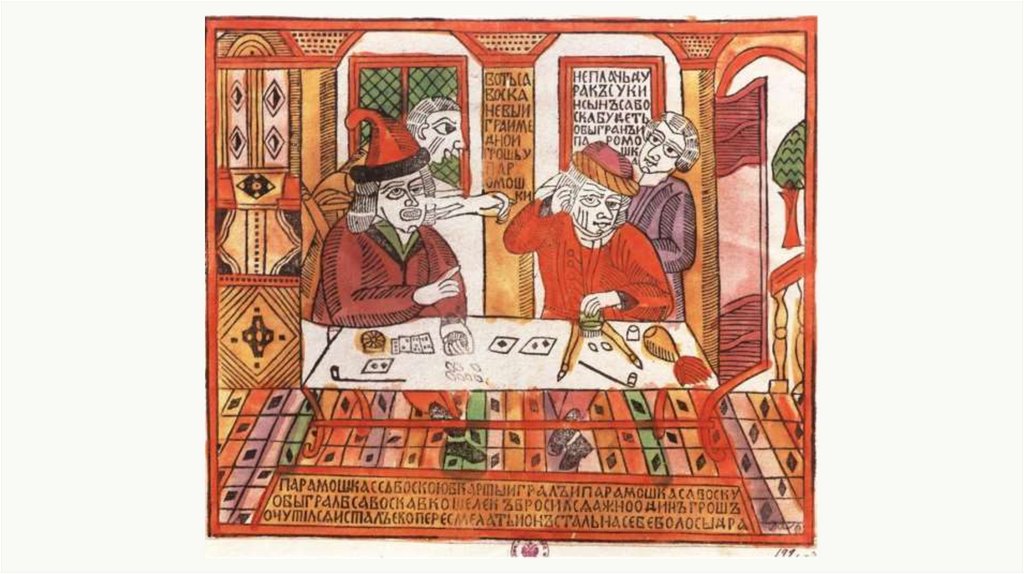 ВОТЬСА
ВОСКА
НЕВЫИ
ГРАИМЕ
ДНОИ
ГРОШЬУ
ПАР
ОМОШ
КИ
НЕПЛАЧЬДУ
РАКЪСУКИ
НСЫНЪСАВО
СКАБУДЕТЬ
ОБЫГРАНЪИ
ПА РОМО
ШК
ПАРАМОШКАССАВОСКОЮВКАРТЫИГРАЛЪИПАРАМОШКАСАВОСКУ
ОБЫГРАЛВСАВОСКАВКОШЕЛЕКЪБРОСИЛСЯАЖНООДИНЪГРОШЪ
ОЧУТИЛСЯИСТАЛЪЕВОПЕРЕСМЕХАТЬИОНЪСТАЛЬНАСЕБЕВОЛОСЫДРА